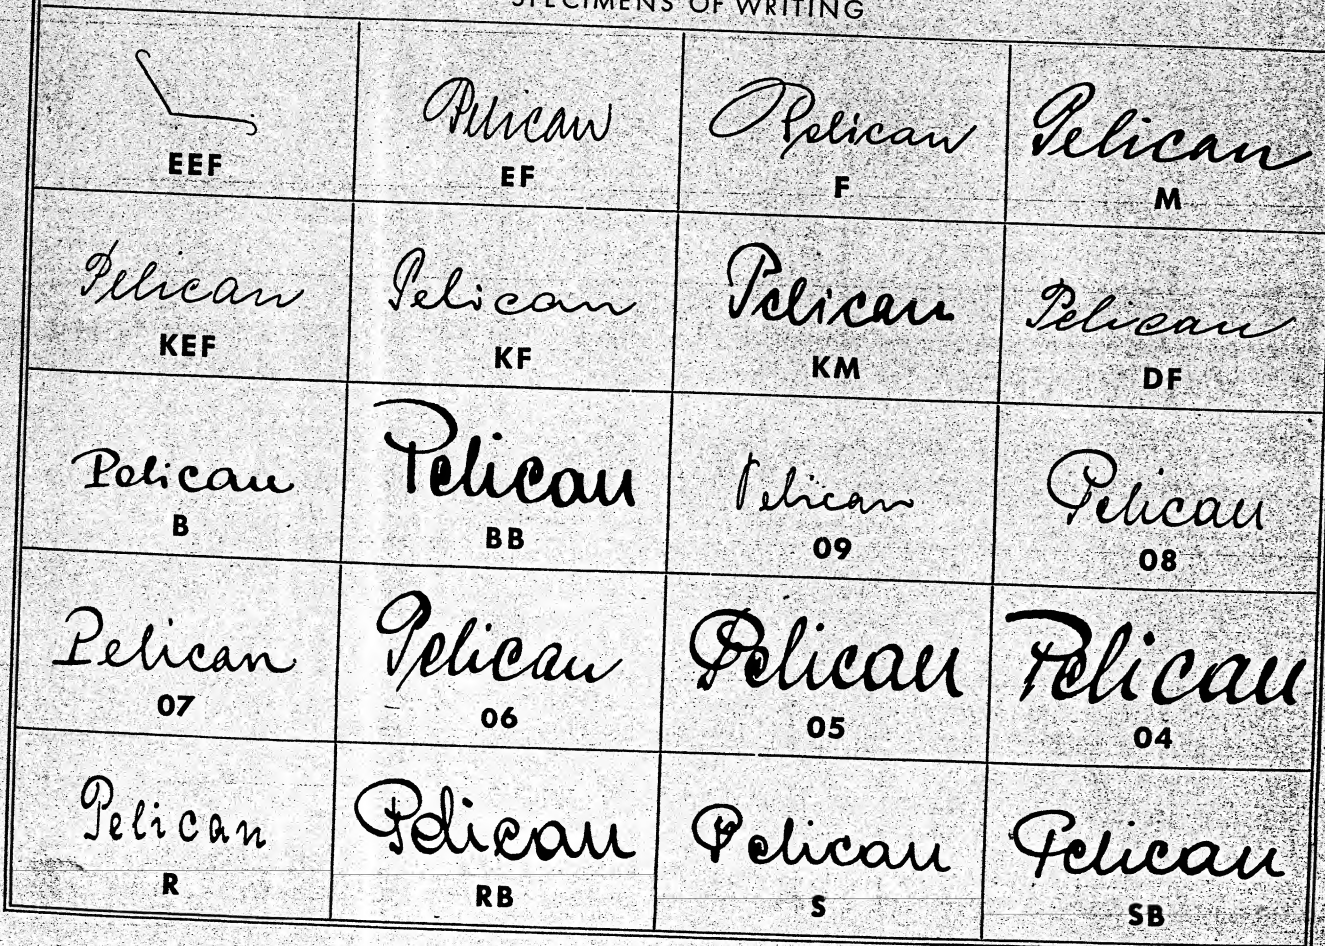 SPECIMENS OF WRITING
EEF
Pelican
EF
Pelican
F
Pelican
M
Pelican
KEF
Pelican
KF
Pelican
KM
Pelican
DF
Pelican
B
Pelican
BB
Pelican
09
Pelican
08
Pelican
07
Pelican
06
Pelican
05
Pelican
04
Pelican
R
Pelican
RB
Pelican
S
Pelican
SB